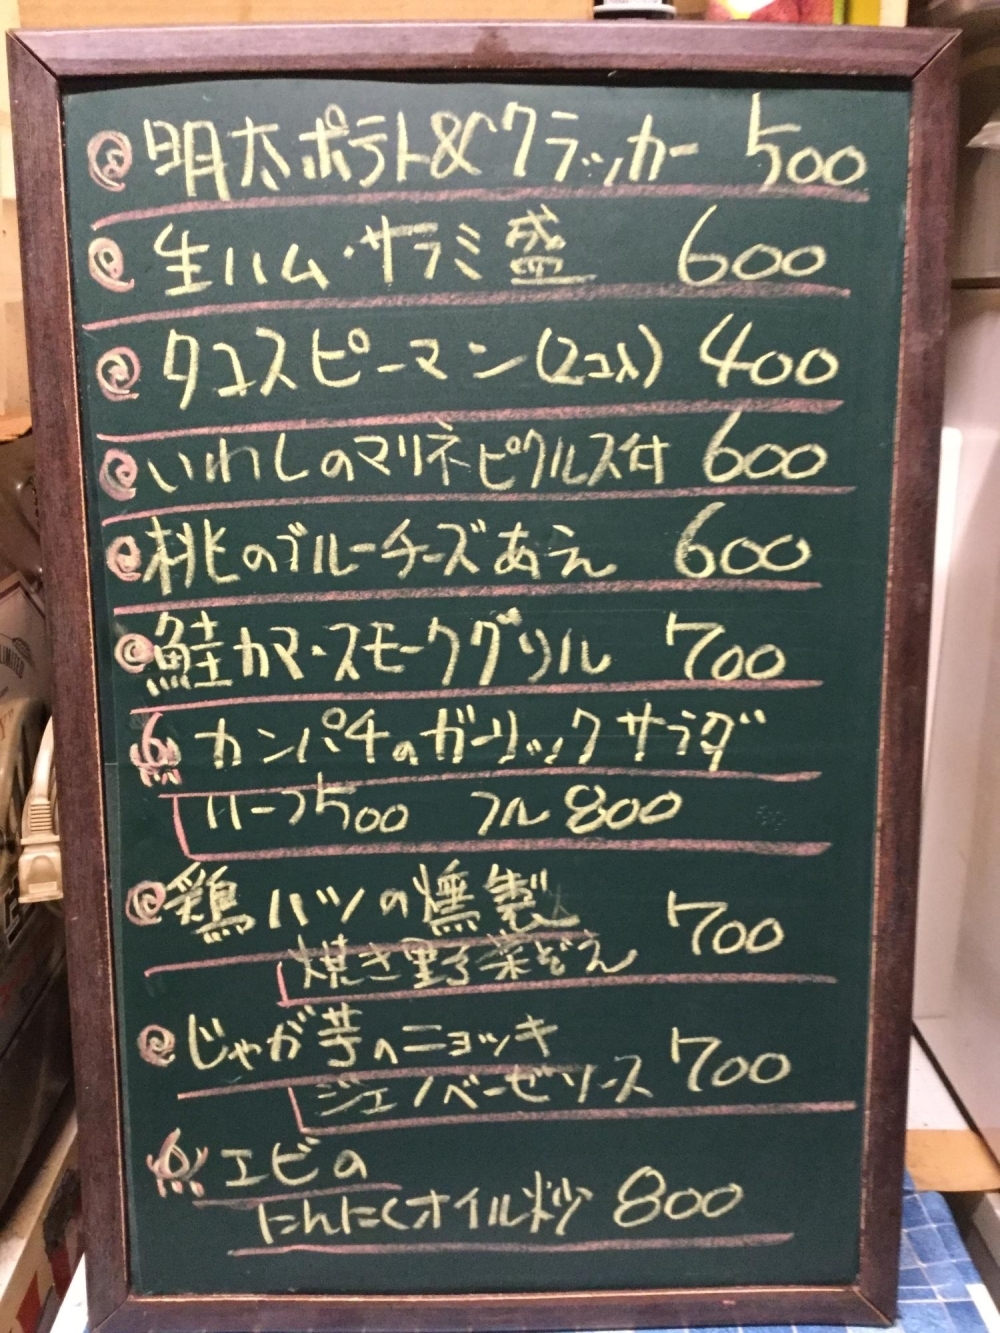 明太ポテト&クラッカー 500
生ハム・サラミ盛 600
タコスピーマン(2コ入) 400
いわしのマリネピクルス付 600
桃のブルーチーズあえ 600
鮭カマ・スモークグリル 700
カンパチのガーリックサラダ
ハーフ500 フル800
鶏ハツの燻製
焼き野菜ぞえ 700
じゃが芋のニョッキ
ジェノベーゼソース 700
エビの
にんにくオイル炒 800